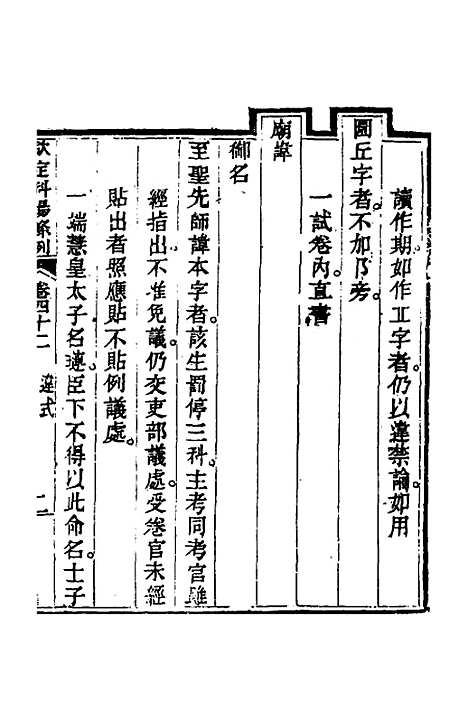 讀作期如作丠字者。仍以違禁論。如用
圜丘字者。不加阝旁。
一試卷內直書
廟諱
御名
至聖先師諱本字者。該生罰停三科。主考同考官雖
經指出。不准免議。仍交吏部議處。受卷官未經
貼出者照應貼不貼例議處。
一端慧皇太子名璉。臣下不得以此命名。士子
欽定科場條例 卷四十二 違式